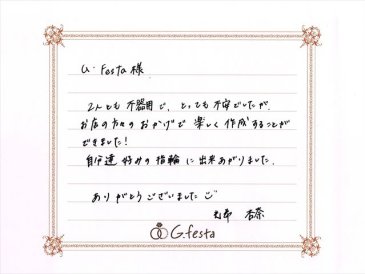 G.festa様
2人とも不器用で、とっても不安でしたが、
お店の方々のおかげで楽しく作成することが
できました!
自分達好みの指輪に出来あがりました。
ありがとうございました
杏奈
G.festa